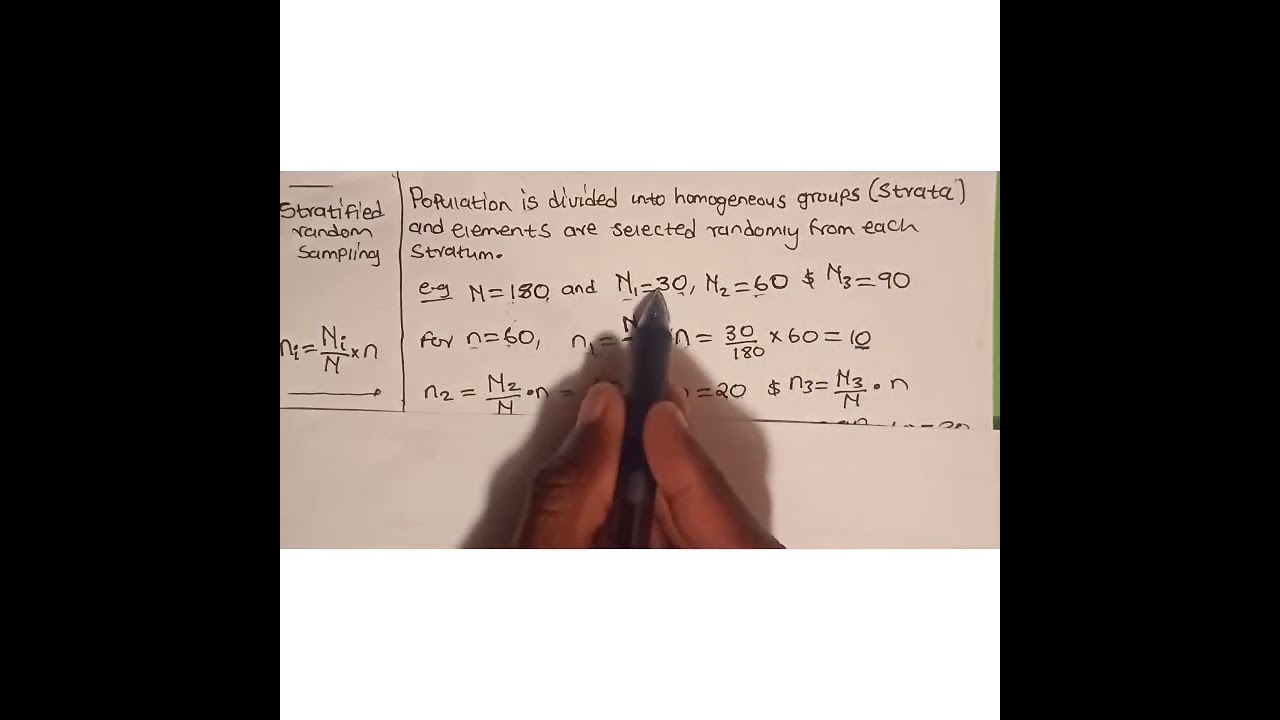 Stratified
random
Sampling
ni = Ni/N × n
Population is divided into homogeneous groups (Strata)
and elements are selected randomly from each
Stratum.
e.g N = 180 and N1 = 30, N2 = 60 & N3 = 90
For n = 60, n1 = N n = 30/180 × 60 = 10
n2 = N2/N · n = = 20 & n3 = N3/N · n